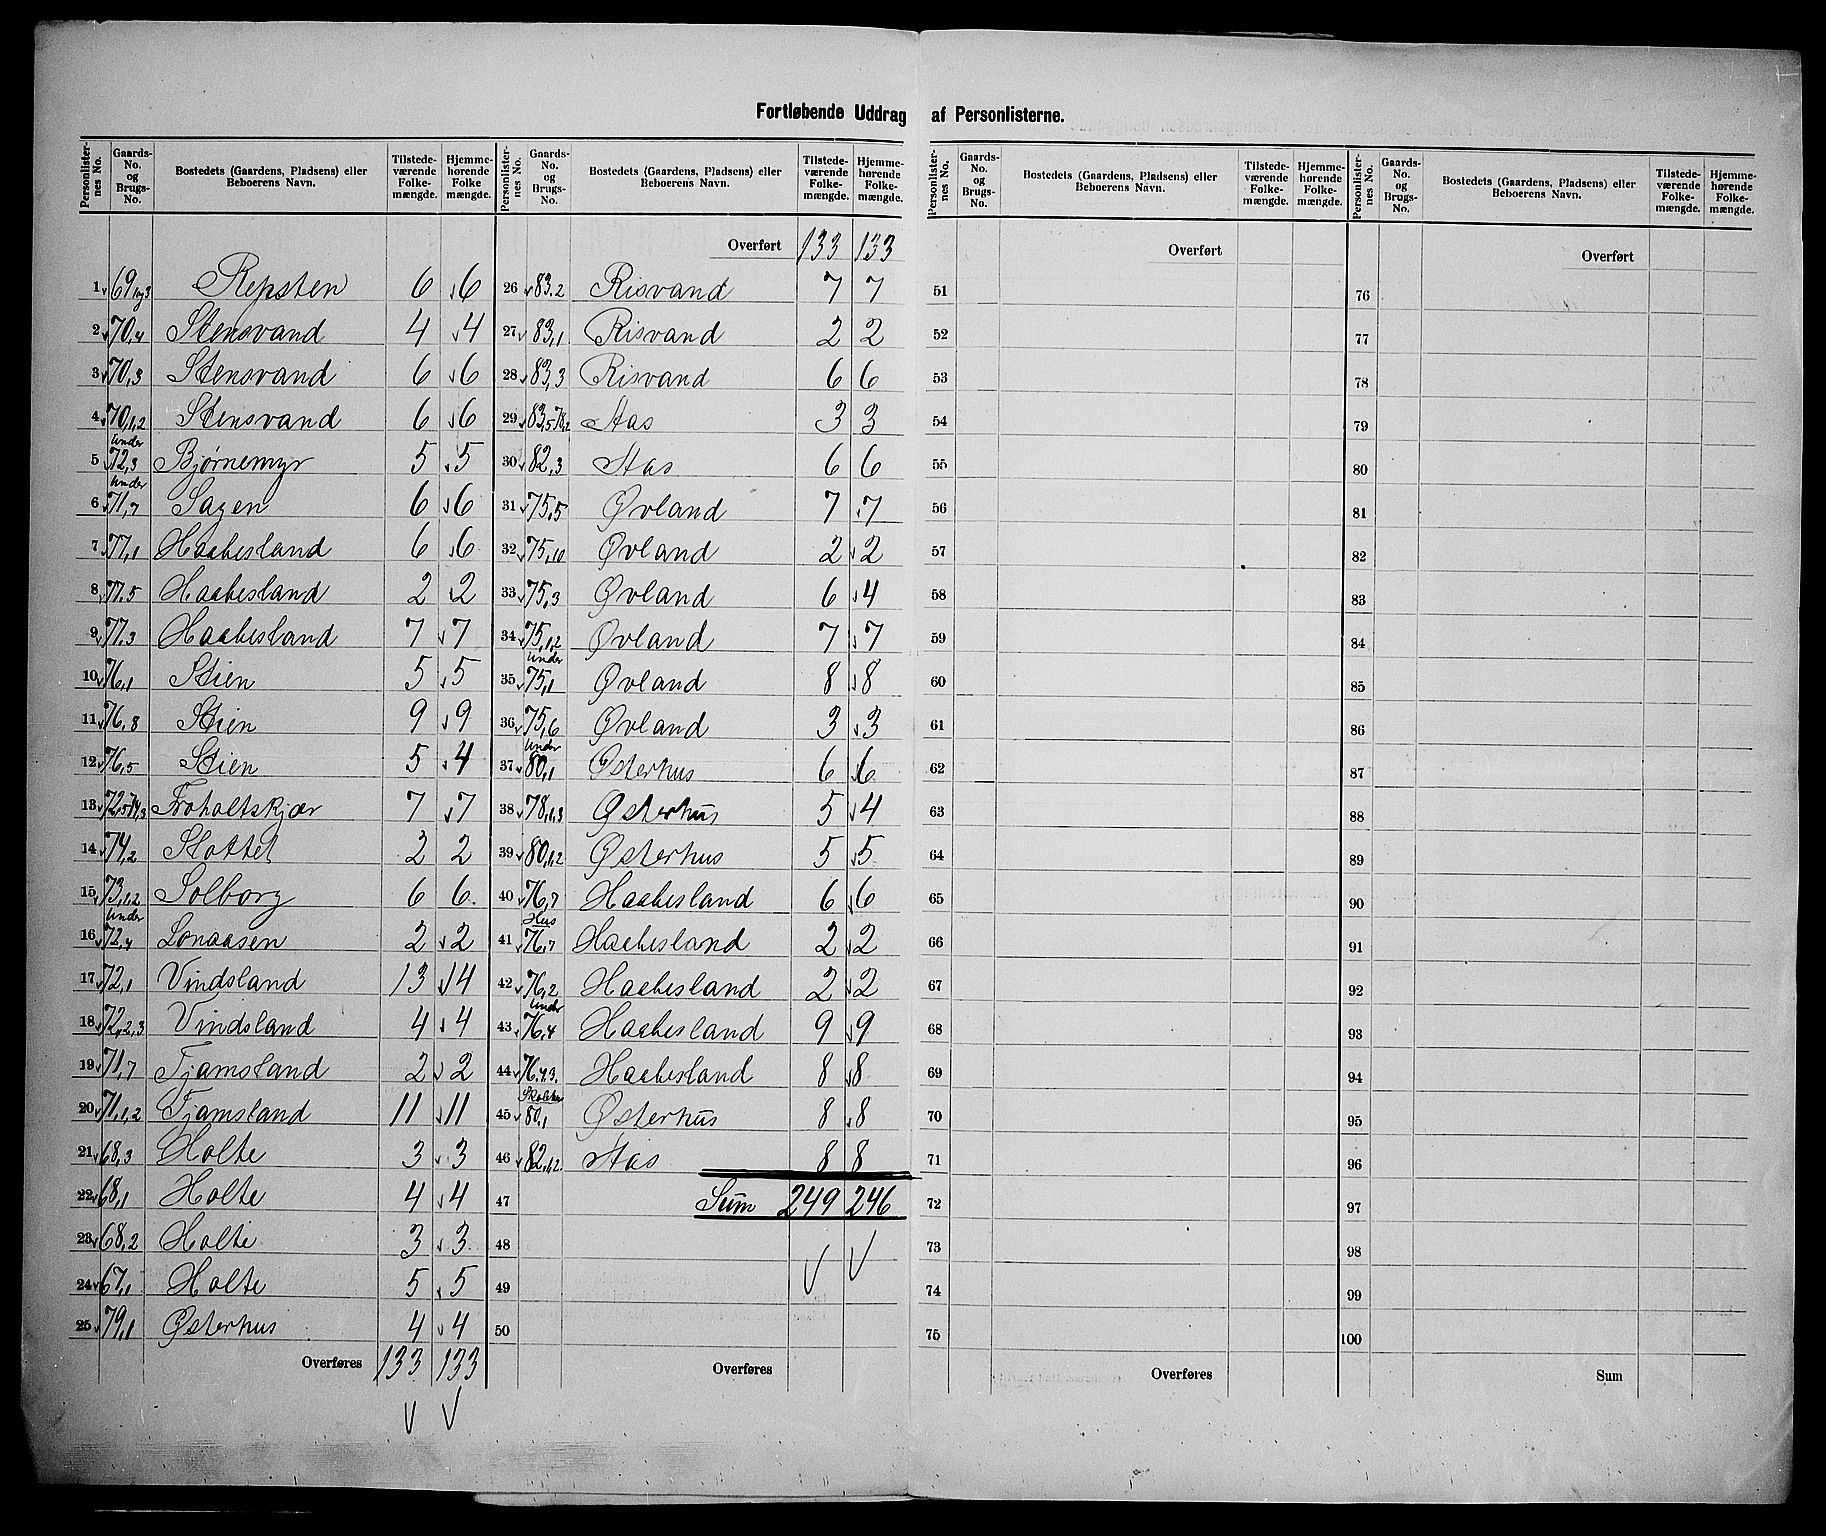 Fortløbende Uddrag af Personlisterne.
Personlister-nes No. | Gaards-No. og Brugs-No. | Bostedets (Gaardens, Pladsens) eller Beboerens Navn. | Tilstede-værende Folke-mængde. | Hjemme-hørende Folke-mængde.
1 69,1og3 Repsten 6 6
2 70,4 Stensvand 4 4
3 70,3 Stensvand 6 6
4 70,1,2 Stensvand 6 6
5 under 72,3 Bjørnemyr 5 5
6 under 71,7 Sagen 6 6
7 77,1 Haabesland 6 6
8 77,5 Haabesland 2 2
9 77,3 Haabesland 7 7
10 76,1 Stien 5 5
11 76,8 Stien 9 9
12 76,5 Stien 5 4
13 72,5 74,3 Froholtskjær 7 7
14 74,2 Slottet 2 2
15 73,1,2 Solborg 6 6
16 under 72,4 Lonaasen 2 2
17 72,1 Vindsland 13 14
18 72,2,3 Vindsland 4 4
19 71,7 Fjamsland 2 2
20 71,1,2 Fjamsland 11 11
21 68,3 Holte 3 3
22 68,1 Holte 4 4
23 68,2 Holte 3 3
24 67,1 Holte 5 5
25 79,1 Østerhus 4 4
Overføres 133 133
Personlister-nes No. | Gaards-No. og Brugs-No. | Bostedets (Gaardens, Pladsens) eller Beboerens Navn. | Tilstede-værende Folke-mængde. | Hjemme-hørende Folke-mængde.
Overført 133 133
26 83,2 Risvand 7 7
27 83,1 Risvand 2 2
28 83,3 Risvand 6 6
29 83,5 78,2 Aas 3 3
30 82,3 Aas 6 6
31 75,5 Øvland 7 7
32 75,10 Øvland 2 2
33 75,3 Øvland 6 4
34 75,1,2 Øvland 7 7
35 under 75,1 Øvland 8 8
36 75,6 Øvland 3 3
37 under 80,1 Østerhus 6 6
38 78,1,3 Østerhus 5 4
39 80,1,2 Østerhus 5 5
40 76,7 Haabesland 6 6
41 Hus 76,7 Haabesland 2 2
42 76,2 Haabesland 2 2
43 under 76,4 Haabesland 9 9
44 76,4,3. Haabesland 8 8
45 Skolehus 80,1 Østerhus 8 8
46 82,1,2 Aas 8 8
47 Sum 249 246
48
49
50
Overføres
Personlister-nes No. | Gaards-No. og Brugs-No. | Bostedets (Gaardens, Pladsens) eller Beboerens Navn. | Tilstede-værende Folke-mængde. | Hjemme-hørende Folke-mængde.
Overført
51
52
53
54
55
56
57
58
59
60
61
62
63
64
65
66
67
68
69
70
71
72
73
74
75
Overføres
Personlister-nes No. | Gaards-No. og Brugs-No. | Bostedets (Gaardens, Pladsens) eller Beboerens Navn. | Tilstede-værende Folke-mængde. | Hjemme-hørende Folke-mængde.
Overført
76
77
78
79
80
81
82
83
84
85
86
87
88
89
90
91
92
93
94
95
96
97
98
99
100
Sum